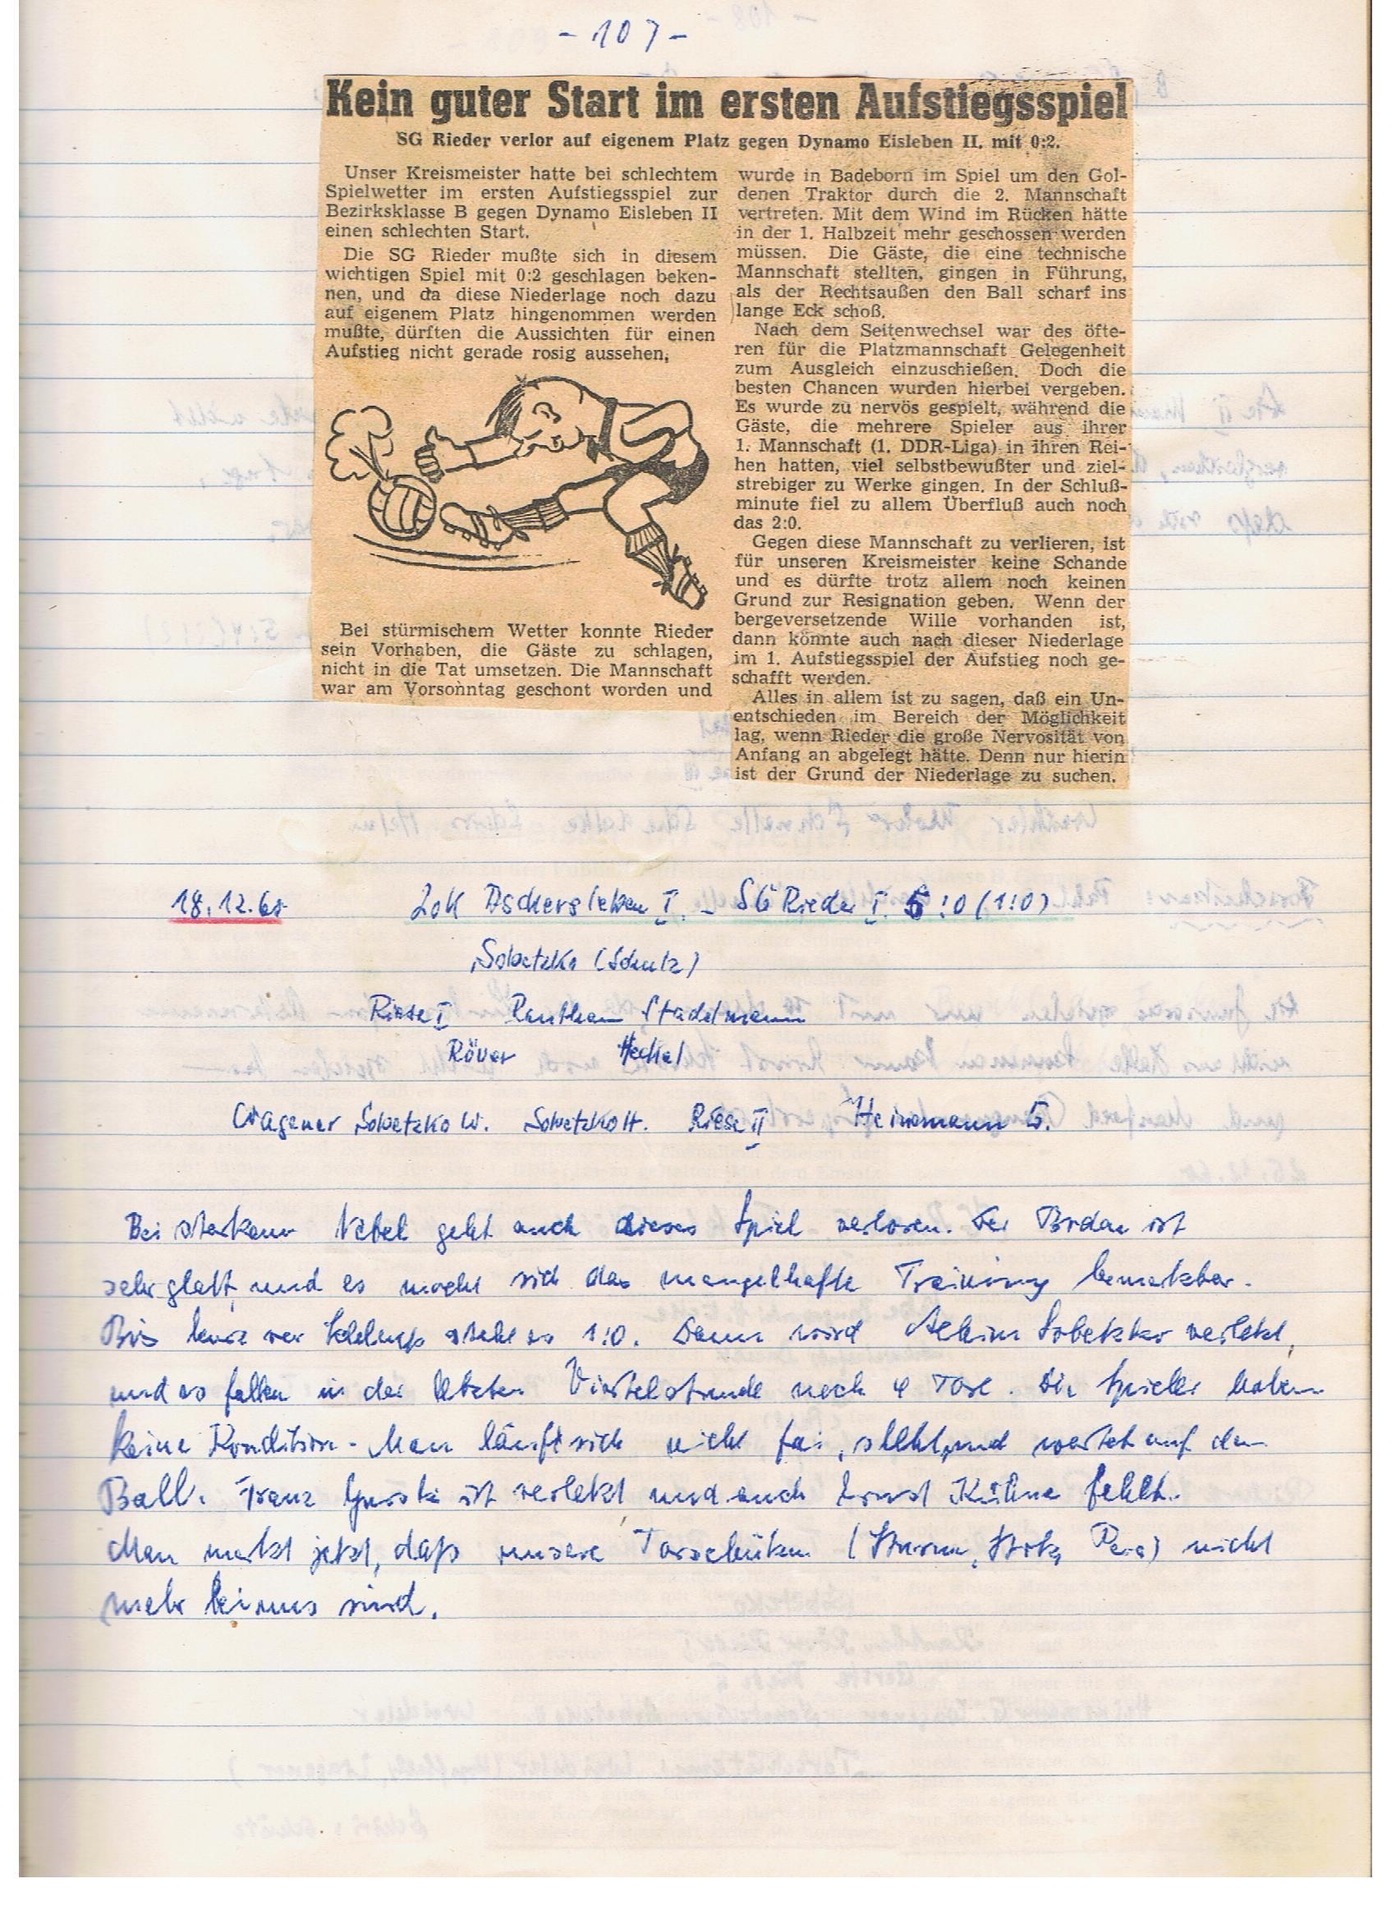 - 107 -
Kein guter Start im ersten Aufstiegsspiel
SG Rieder verlor auf eigenem Platz gegen Dynamo Eisleben II. mit 0:2.
Unser Kreismeister hatte bei schlechtem
Spielwetter im ersten Aufstiegsspiel zur
Bezirksklasse B gegen Dynamo Eisleben II
einen schlechten Start.
Die SG Rieder mußte sich in diesem
wichtigen Spiel mit 0:2 geschlagen beken-
nen, und da diese Niederlage noch dazu
auf eigenem Platz hingenommen werden
mußte, dürften die Aussichten für einen
Aufstieg nicht gerade rosig aussehen,
Bei stürmischem Wetter konnte Rieder
sein Vorhaben, die Gäste zu schlagen,
nicht in die Tat umsetzen. Die Mannschaft
war am Vorsonntag geschont worden und
wurde in Badeborn im Spiel um den Gol-
denen Traktor durch die 2. Mannschaft
vertreten. Mit dem Wind im Rücken hätte
in der 1. Halbzeit mehr geschossen werden
müssen. Die Gäste, die eine technische
Mannschaft stellten, gingen in Führung,
als der Rechtsaußen den Ball scharf ins
lange Eck schoß.
Nach dem Seitenwechsel war des öfte-
ren für die Platzmannschaft Gelegenheit
zum Ausgleich einzuschießen. Doch die
besten Chancen wurden hierbei vergeben.
Es wurde zu nervös gespielt, während die
Gäste, die mehrere Spieler aus ihrer
1. Mannschaft (1. DDR-Liga) in ihren Rei-
hen hatten, viel selbstbewußter und ziel-
strebiger zu Werke gingen. In der Schluß-
minute fiel zu allem Überfluß auch noch
das 2:0.
Gegen diese Mannschaft zu verlieren, ist
für unseren Kreismeister keine Schande
und es dürfte trotz allem noch keinen
Grund zur Resignation geben. Wenn der
bergeversetzende Wille vorhanden ist,
dann könnte auch nach dieser Niederlage
im 1. Aufstiegsspiel der Aufstieg noch ge-
schafft werden.
Alles in allem ist zu sagen, daß ein Un-
entschieden im Bereich der Möglichkeit
lag, wenn Rieder die große Nervosität von
Anfang an abgelegt hätte. Denn nur hierin
ist der Grund der Niederlage zu suchen.
18.12.60 Lok Aschersleben I. - SG Rieder I. 5:0 (1:0)
Sobetzko (Schulz)
Riese I Stadelmann
Röver Heckel
Wagener Sobetzko W. Sobetzko H. Riese II Heinemann G.
Bei starkem Nebel geht auch dieses Spiel verloren. Der Boden ist
sehr glatt, und es macht sich das mangelhafte Training bemerkbar.
Bis kurz vor Schluß steht es 1:0. Dann wird Achim Sobetzko verletzt,
und es fallen in der letzten Viertelstunde noch 4 Tore. Die Spieler haben
keine Kondition. Man läuft sich nicht frei, steht und wartet auf den
Ball. Franz ist verletzt und auch Ernst Kühne fehlt.
Man merkt jetzt, daß unsere Torschützen (Sturm, ) nicht
mehr bei uns sind.